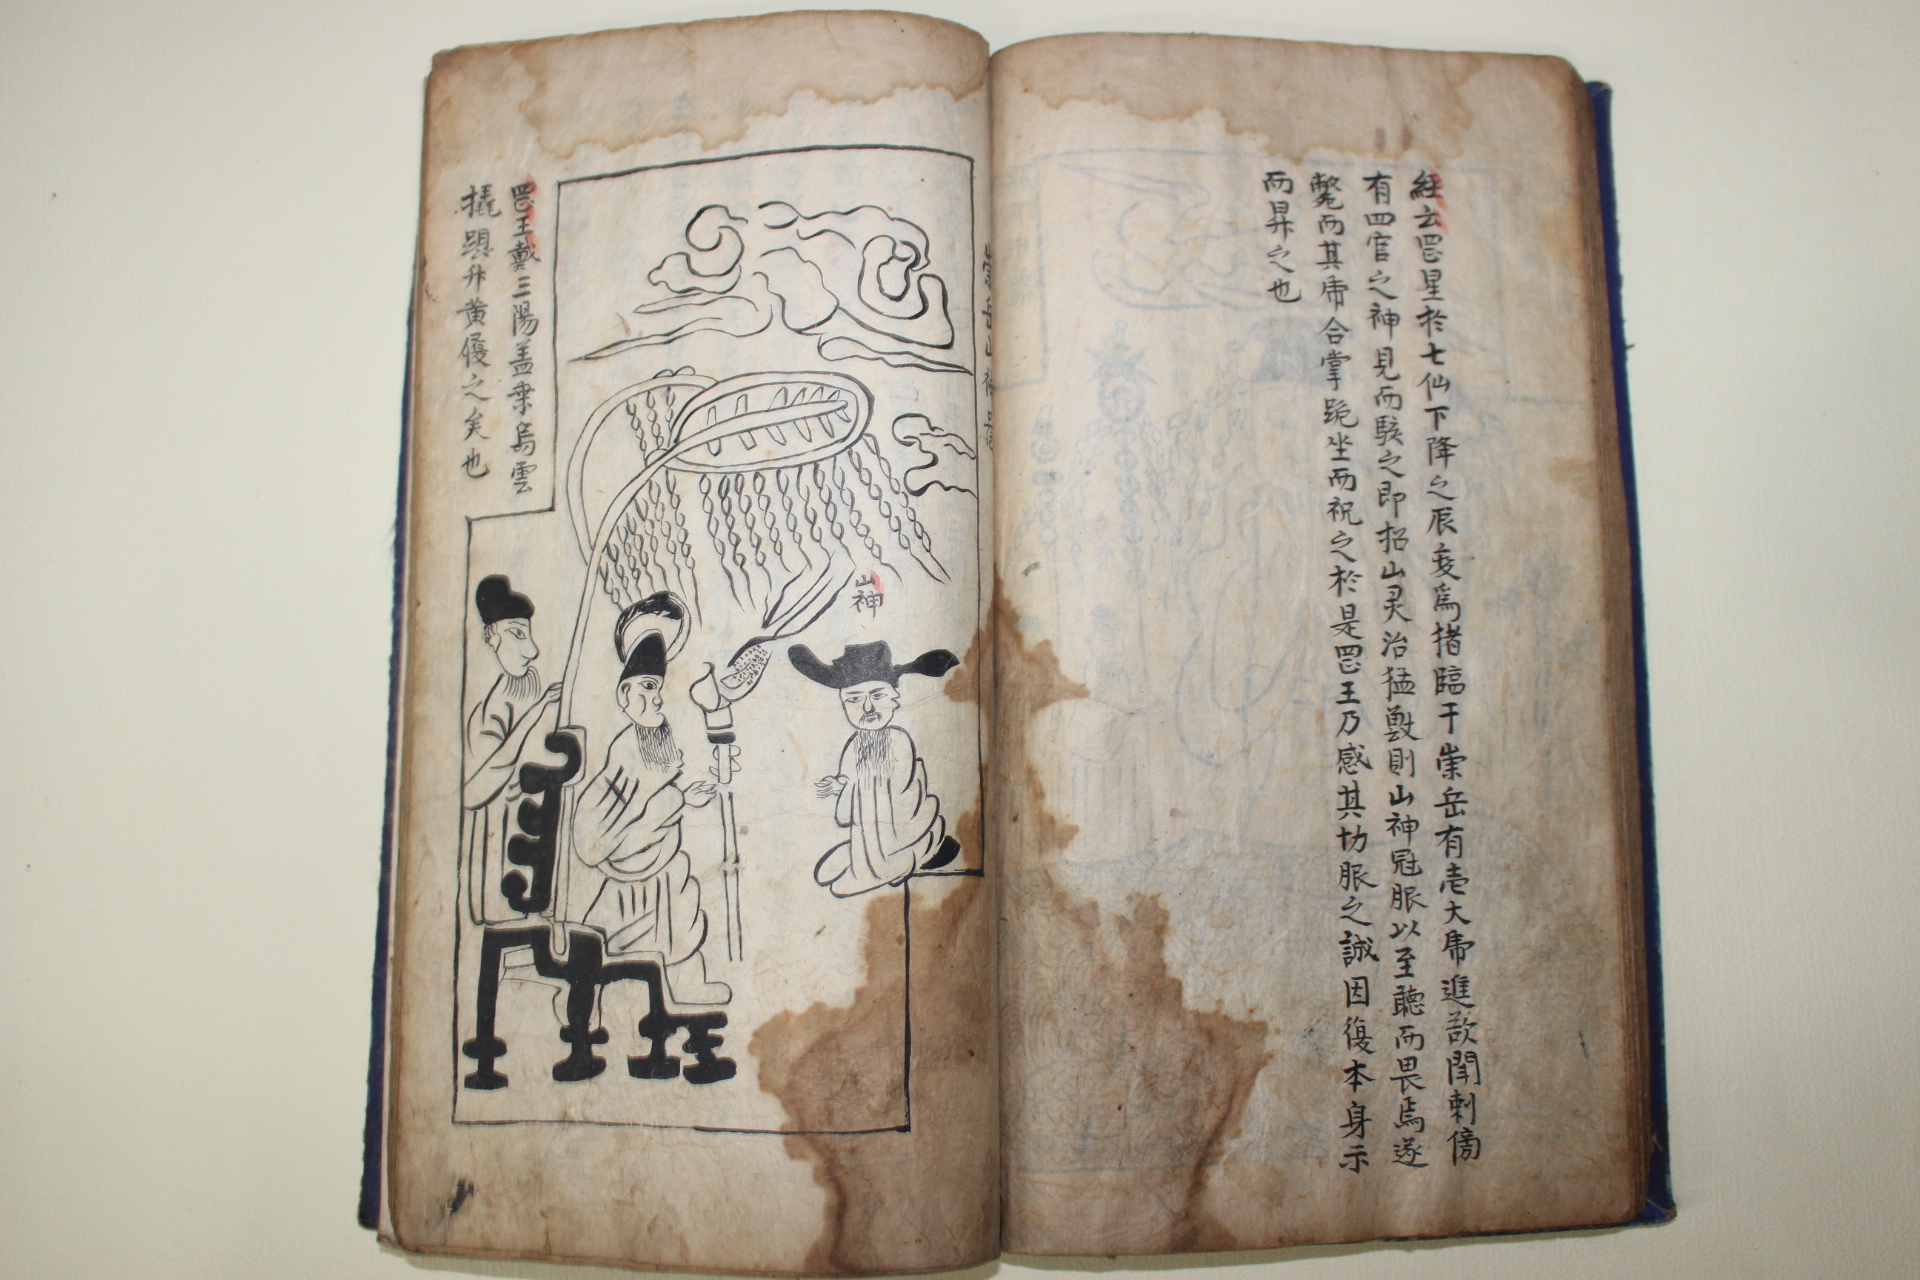 經云罡星於七仙下降之辰変為猪臨于崇岳有壱大帍進欲闁刺傍
有四官之神見而駭之即招山灵治猛獸則山神冠服以至聽而畏焉遂
斃而其帍合掌跪坐而祝之於是罡王乃感其切服之誠因復本身示
而昇之也
崇岳山神
山神
罡王戴三陽盖乗烏雲
撬𨁂升黄𠊓之矣也